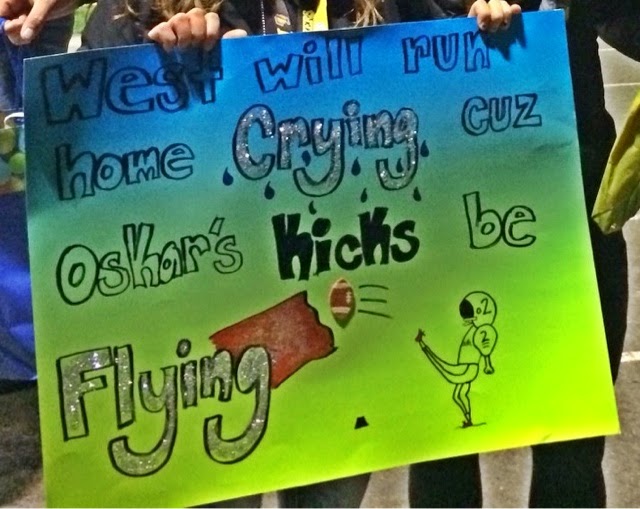 West will run
home Crying cuz
Oskar's Kicks be
Flying
2
2